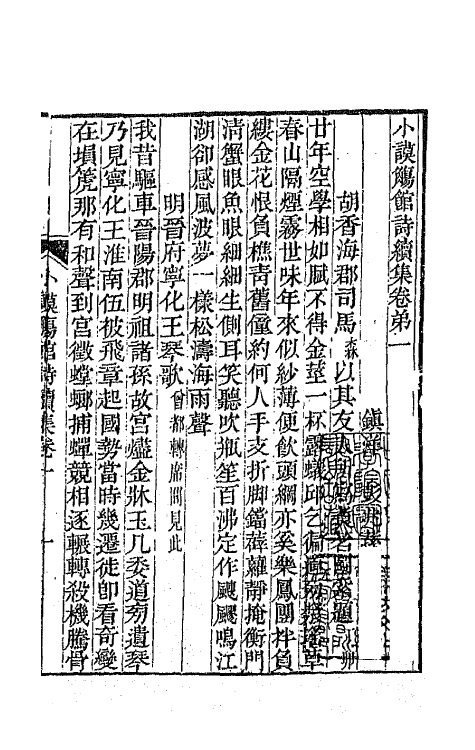 小謨觴館詩續集卷第一
鎮洋
胡香海郡司馬森以其友
廿年空學相如賦不得金莖一杯露蟻邱乞
春山隔煙霧世味年來似紗薄便飲頭綱亦奚樂鳳團拌負
縷金花恨負樵青舊僮約何人手支折腳鐺薜蘿靜掩衡門
清蟹眼魚眼細細生側耳笑聽吹瓶笙百沸定作颼颼鳴江
湖卻感風波夢一樣松濤海雨聲
明晉府寧化王琴歌曾都轉席間見此
我昔驅車晉陽郡明祖諸孫故宮燼金牀玉几委道旁遺琴
乃見寧化王淮南伍被飛章起國勢當時幾遷徙卽看奇變
在塤箎那有和聲到宮徵螳螂捕蟬競相逐輾轉殺機騰骨
小謨觴館詩續集卷一
一